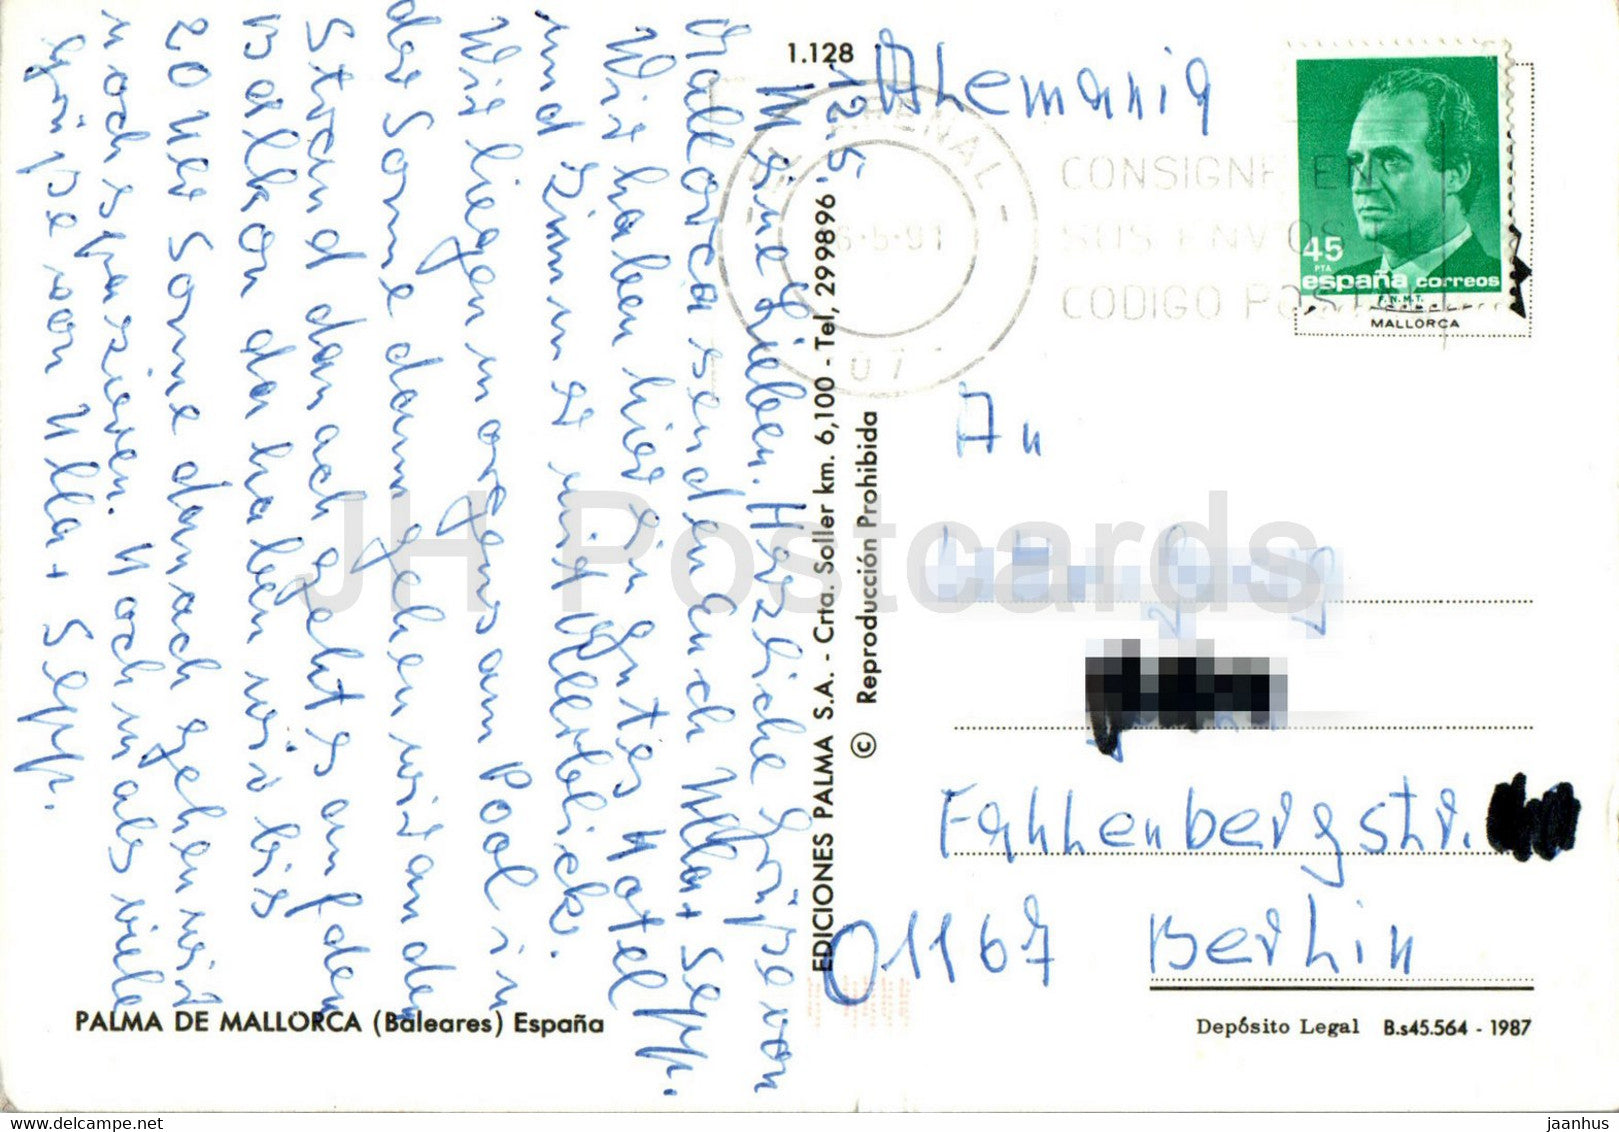 1.128
12.5.
Meine Lieben. Herzliche Grüße von
Mallorca senden Euch Ulla + Sepp.
Wir haben hier ein gutes Hotel
und Zimmer mit Meerblick.
Wir liegen morgens am Pool in
der Sonne dann gehen wir an den
Strand danach geht es auf den
Balkon da haben wir bis
20 Uhr Sonne danach gehen wir
noch spazieren. Nochmals viele
Grüße von Ulla + Sepp.
PALMA DE MALLORCA (Baleares) España
EDICIONES PALMA S.A. - Crta. Soller km. 6,100 - Tel, 299896
© Reproducción Prohibida
Alemania
ARENAL
6-5-91
07
CONSIGNE EN
SUS ENVIOS EL
CODIGO POSTAL
45
PTA
españa correos
F.N.M.T.
MALLORCA
An
Fahlenbergstr.
01167 Berlin
Depósito Legal B.s45.564 - 1987
JH Postcards
www.delcampe.net
jaanhus